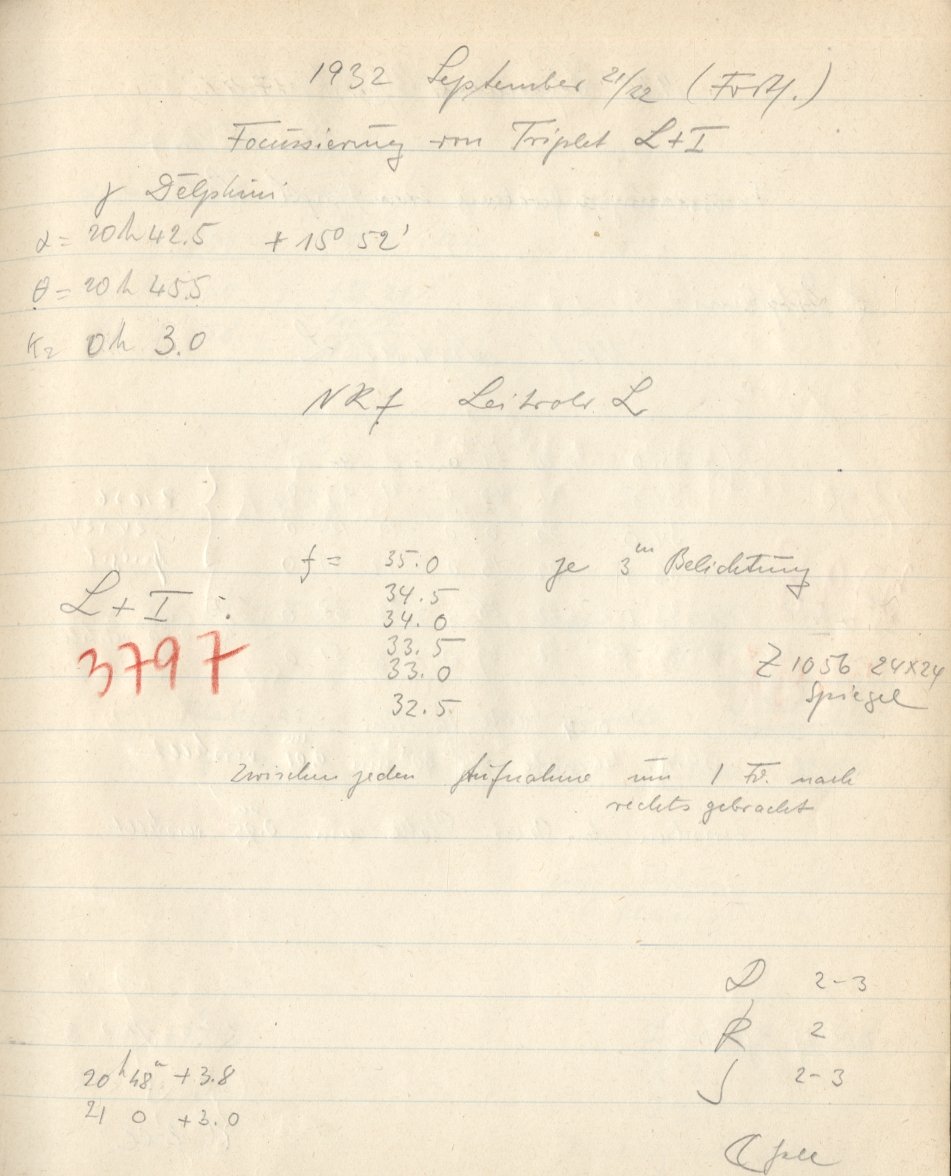 1932 September 21/22 (Forts.)
Focussierung von Triplet L+I
γ Delphini
α = 20h 42.5 + 15° 52'
θ = 20h 45.5
0h 3.0
NRf Leitrohr L
f = 35.0 je 3m Belichtung
34.5
L + I :
34.0
33.5
3797
33.0
Z 1056 24x24
Spiegel
32.5
Zwischen jeden Aufnahme um 1 Fd. nach
rechts gebracht
D 2-3
R 2
J 2-3
20h 48m +3.8
21 0 +3.0
☾ hell